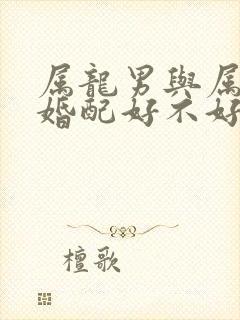 属龍男與属
婚配好不好
檀歌